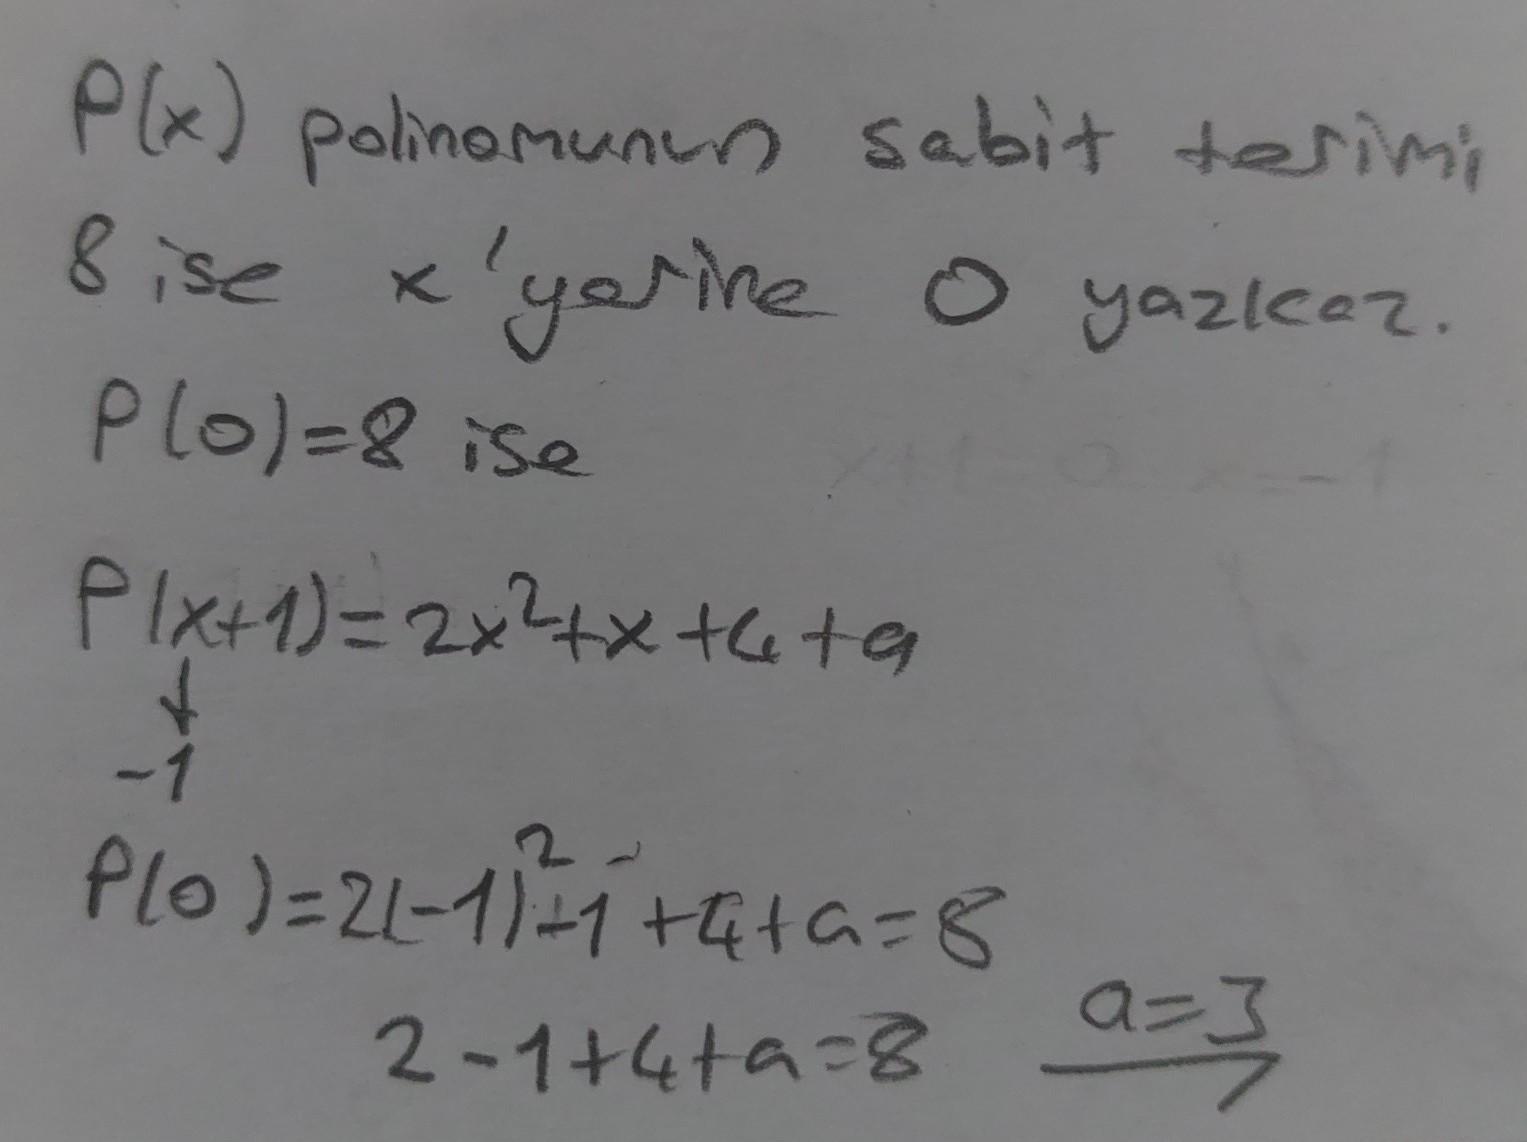 P(x) polinomunun sabit terimi
8 ise x' yerine 0 yazıcaz.
P(0)=8 ise
P(x+1)=2x²+x+4+a
↓
-1
P(0)=2(-1)²-1+4+a=8
2-1+4+a=8 a=3